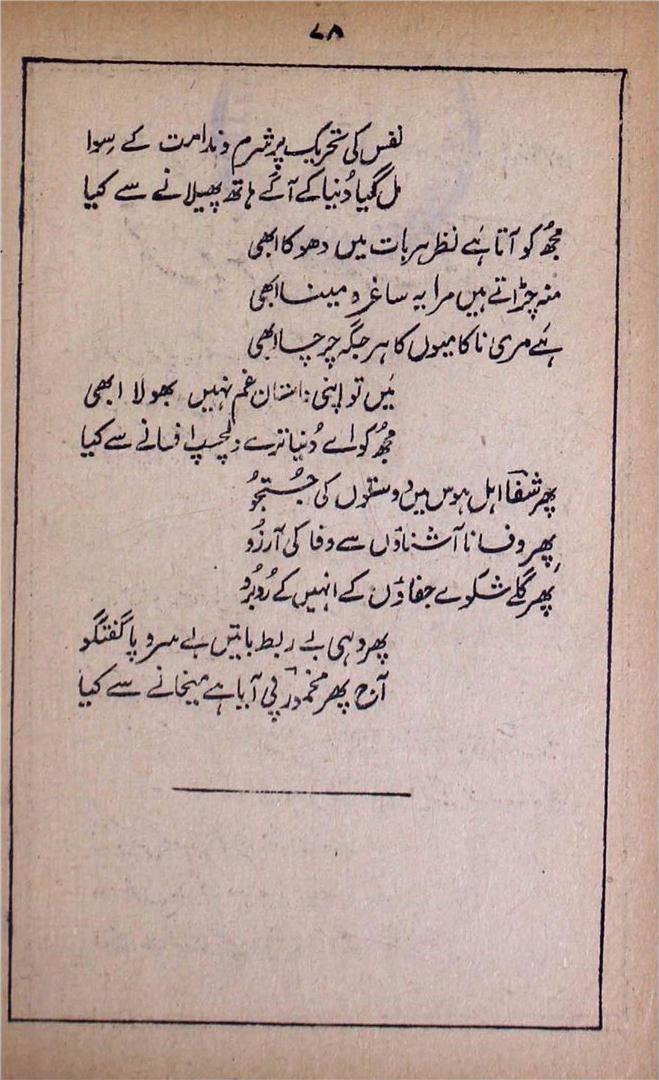 ۷۸
نفس کی تحریک پر شرم و ندامت کے سِوا
مل گیا دُنیا کے آگے ہاتھ پھیلانے سے کیا
مجھُ کو آتا ہَے نظر ہر بات میں دھوکا ابھی
منہ چڑاتے ہیں مرا یہ ساغر و مینا ابھی
ہَے مری ناکامیوں کا ہر جگہ چرچا ابھی
مَیں تو اپنی داستان غم نہیں بھولا ابھی
مجھُ کو اے دُنیا ترے دلچسپ افسانے سے کیا
پھر شفاؔ اہل ہوس میں دوستوں کی جُستجوُ
پھر وفا نا آشناؤں سے وفا کی آرزوُ
پھر گلے شکوے جفاؤں کے انہیں کے رُوبرُو
پھر وہی بے ربط باتیں بے سر و پا گفتگو
آج پھر مخمورؔ پی آیا ہے میخانے سے کیا